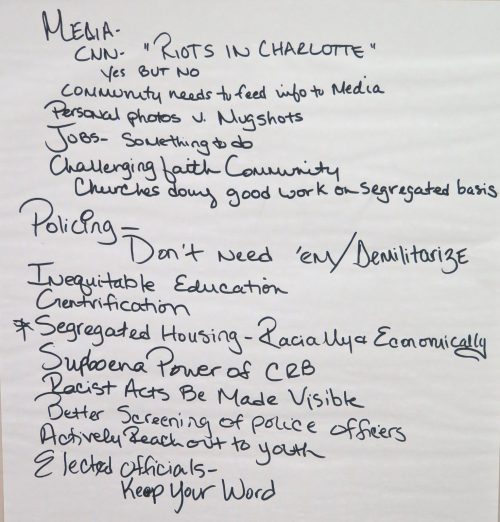 MEDIA-
CNN- "RIOTS IN CHARLOTTE"
Yes BUT NO
COMMUNITY needs to feed info to Media
Personal photos v. Mugshots
JOBS- Something to do
Challenging faith Community
Churches doing good work on segregated basis
Policing =
Don't NEED 'EM/Demilitarize
Inequitable Education
Gentrification
* Segregated Housing - Racially & Economically
Supboena Power of CRB
Racist Acts Be Made Visible
Better Screening of police officers
Actively Reach out to youth
Elected officials-
Keep Your Word